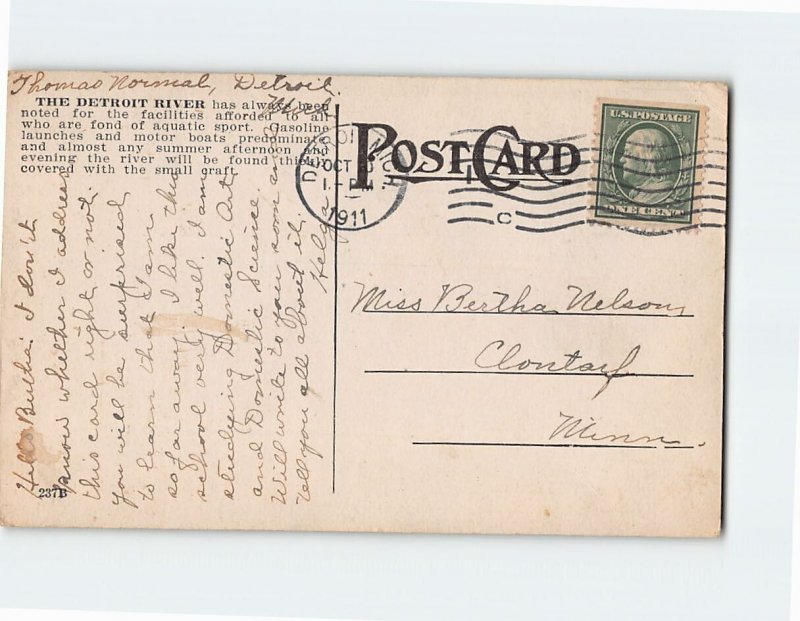 Thomas Normal, Detroit.
Mich
THE DETROIT RIVER has always been
noted for the facilities afforded to all
who are fond of aquatic sport. Gasoline
launches and motor boats predominate
and almost any summer afternoon and
evening the river will be found thickly
covered with the small craft.
Hello Bertha: I don't
know whether I address
this card right or not.
You will be surprised
to learn that I am
so far away. I like this
school very well. I am
studying Domestic Art
and Domestic Science.
Will write to you soon and
tell you all about it.
Helga
237B
POST CARD
DETROIT, MICH
OCT
1-PM
1911
C
U.S. POSTAGE
ONE CENT
Miss Bertha Nelson,
Clontarf
Minn.